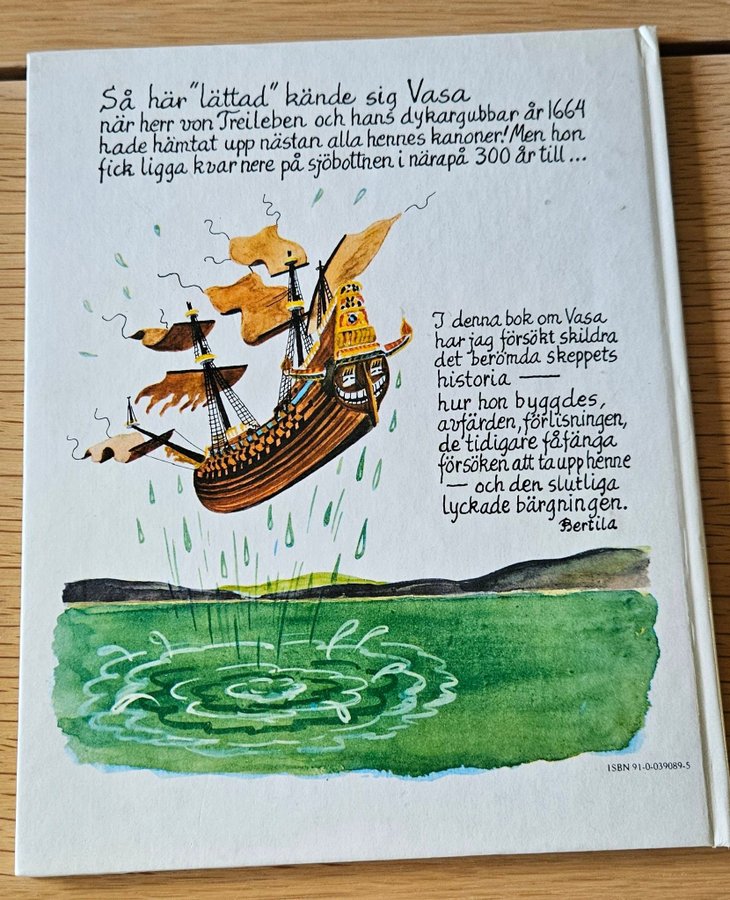 Så här "lättad" kände sig Vasa
när herr von Treileben och hans dykargubbar år 1664
hade hämtat upp nästan alla hennes kanoner! Men hon
fick ligga kvar nere på sjöbottnen i närapå 300 år till...
I denna bok om Vasa
har jag försökt skildra
det berömda skeppets
historia —
hur hon byggdes,
avfärden, förlisningen,
de tidigare fåfänga
försöken att ta upp henne
— och den slutliga
lyckade bärgningen.
Bertila
ISBN 91-0-039089-5